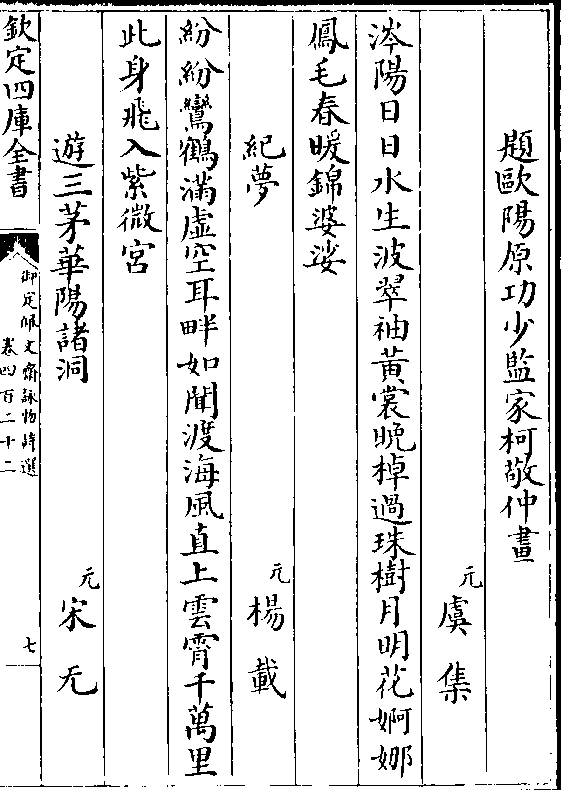 題歐陽原功少監家柯敬仲畫
元 虞集
涔陽日日水生波翠袖黃裳晩棹過珠樹月明花婀娜
鳳毛春暖錦婆娑
紀夢
元 楊載
紛紛鸞鶴滿虛空耳畔如聞渡海風直上雲霄千萬里
此身飛入紫微宮
遊三茅華陽諸洞
元 宋无
欽定四庫全書
御定佩文齋詠物詩選
卷四百二十二
七